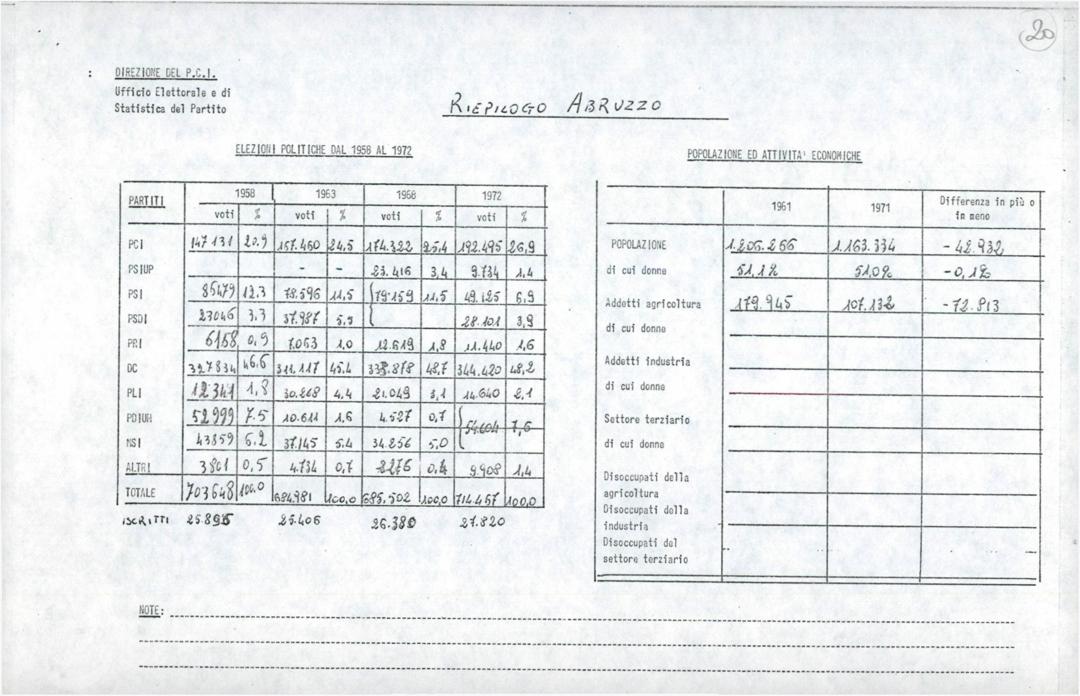 20
DIREZIONE DEL P.C.I.
Ufficio Elettorale e di
Statistica del Partito
RIEPILOGO ABRUZZO
ELEZIONI POLITICHE DAL 1958 AL 1972
PARTITI 1958 1963 1968 1972
voti % voti % voti % voti %
PCI 147131 20.9 157.460 24,5 174.322 25,4 192.495 26,9
PSIUP - - 23.416 3,4 9.734 1,4
PSI 85479 12.3 78.596 11,5 79.159 11,5 49.125 6,9
PSDI 23046 3.3 37.987 5,5 28.101 3,9
PRI 6158 0,9 7.063 1,0 12.619 1,8 11.440 1,6
DC 327834 46,6 311.117 45,4 333.878 48,7 344.420 48,2
PLI 12341 1,8 30.268 4,4 21.049 3,1 14.640 2,1
PDIUM 52999 7.5 10.611 1,6 4.527 0,7 54.604 7,6
MSI 43859 6.2 37.145 5.4 34.256 5,0
ALTRI 3801 0,5 4.734 0,7 2276 0,4 9.908 1,4
TOTALE 703648 100.0 684.981 100,0 685.502 100,0 714.467 100,0
ISCRITTI 25.895 25.406 26.380 27.820
POPOLAZIONE ED ATTIVITA' ECONOMICHE
1961 1971 Differenza in più o
in meno
POPOLAZIONE 1.206.266 1.163.334 - 42.932
di cui donne 51,1% 51,0% -0,1%
Addetti agricoltura 179.945 107.132 -72.813
di cui donne
Addetti industria
di cui donne
Settore terziario
di cui donne
Disoccupati della
agricoltura
Disoccupati della
industria
Disoccupati del
settore terziario
NOTE: